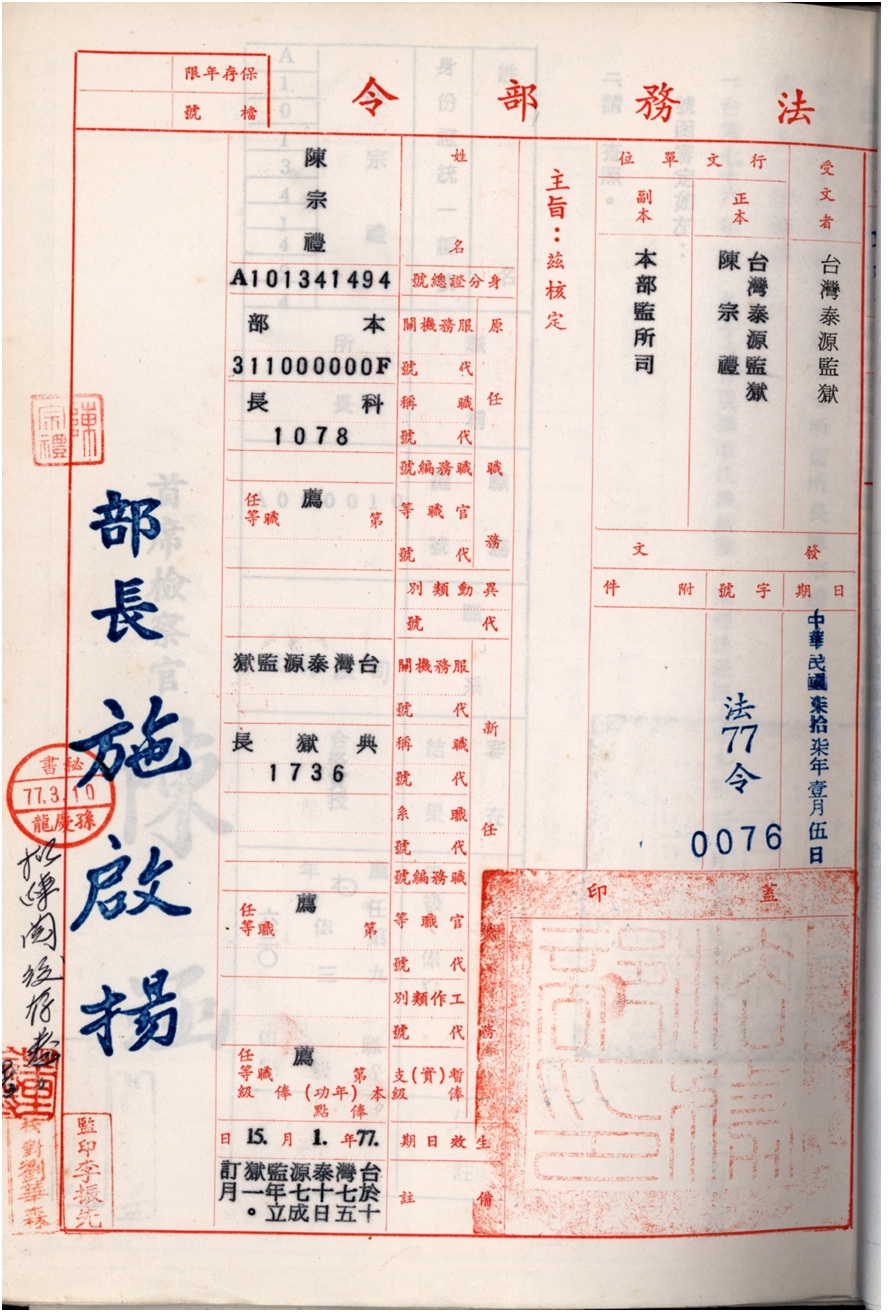 法務部令
保存年限
檔號
受文者
台灣泰源監獄
行文單位
正本
台灣泰源監獄
陳宗禮
副本
本部監所司
發文
日期
中華民國柒拾柒年壹月伍日
字號
法77令
0076
附件
蓋印
主旨：茲核定
姓名
陳宗禮
身分證總號
A101341494
原任職務
服務機關
本部
代號
311000000F
職稱
科長
代號
1078
職務編號
官職等
薦任第職等
代號
異動類別
代號
新任職務
服務機關
台灣泰源監獄
代號
職稱
典獄長
代號
1736
職系
代號
職務編號
官職等
薦任第職等
代號
工作類別
代號
暫支(實)俸級
薦任第職等本(年功)俸級俸點
生效日期
77.年1.月15.日
備註
台灣泰源監獄訂
於七七年一月
十五日成立。
部長施啟揚
陳宗禮
秘書
77.3.10
孫慶龍
監印李振先
校對劉華森